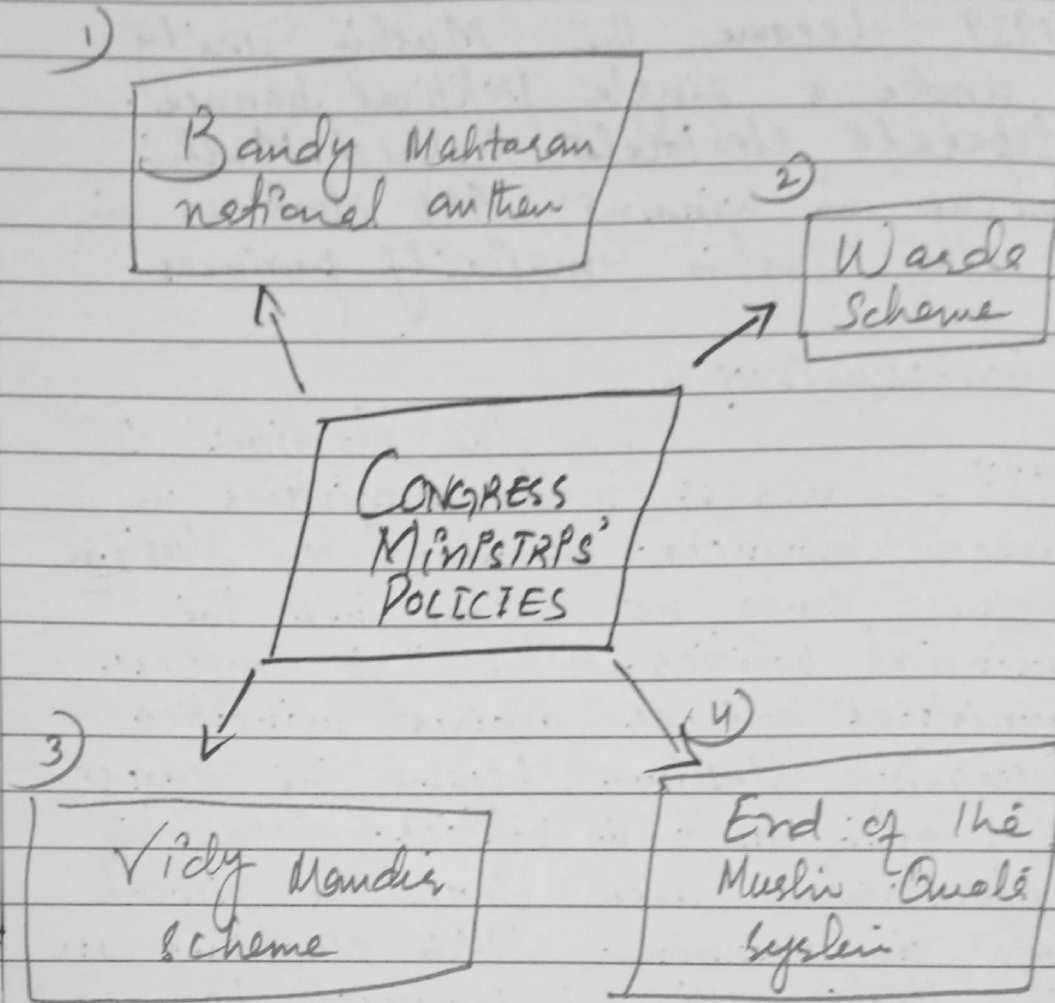 1)
Bandy Mahtaram
national anthem
2)
Warda
Scheme
CONGRESS
MiNISTRIS'
POLICIES
3)
Vidy Mandir
scheme
4)
End of the
Muslim Quota
System